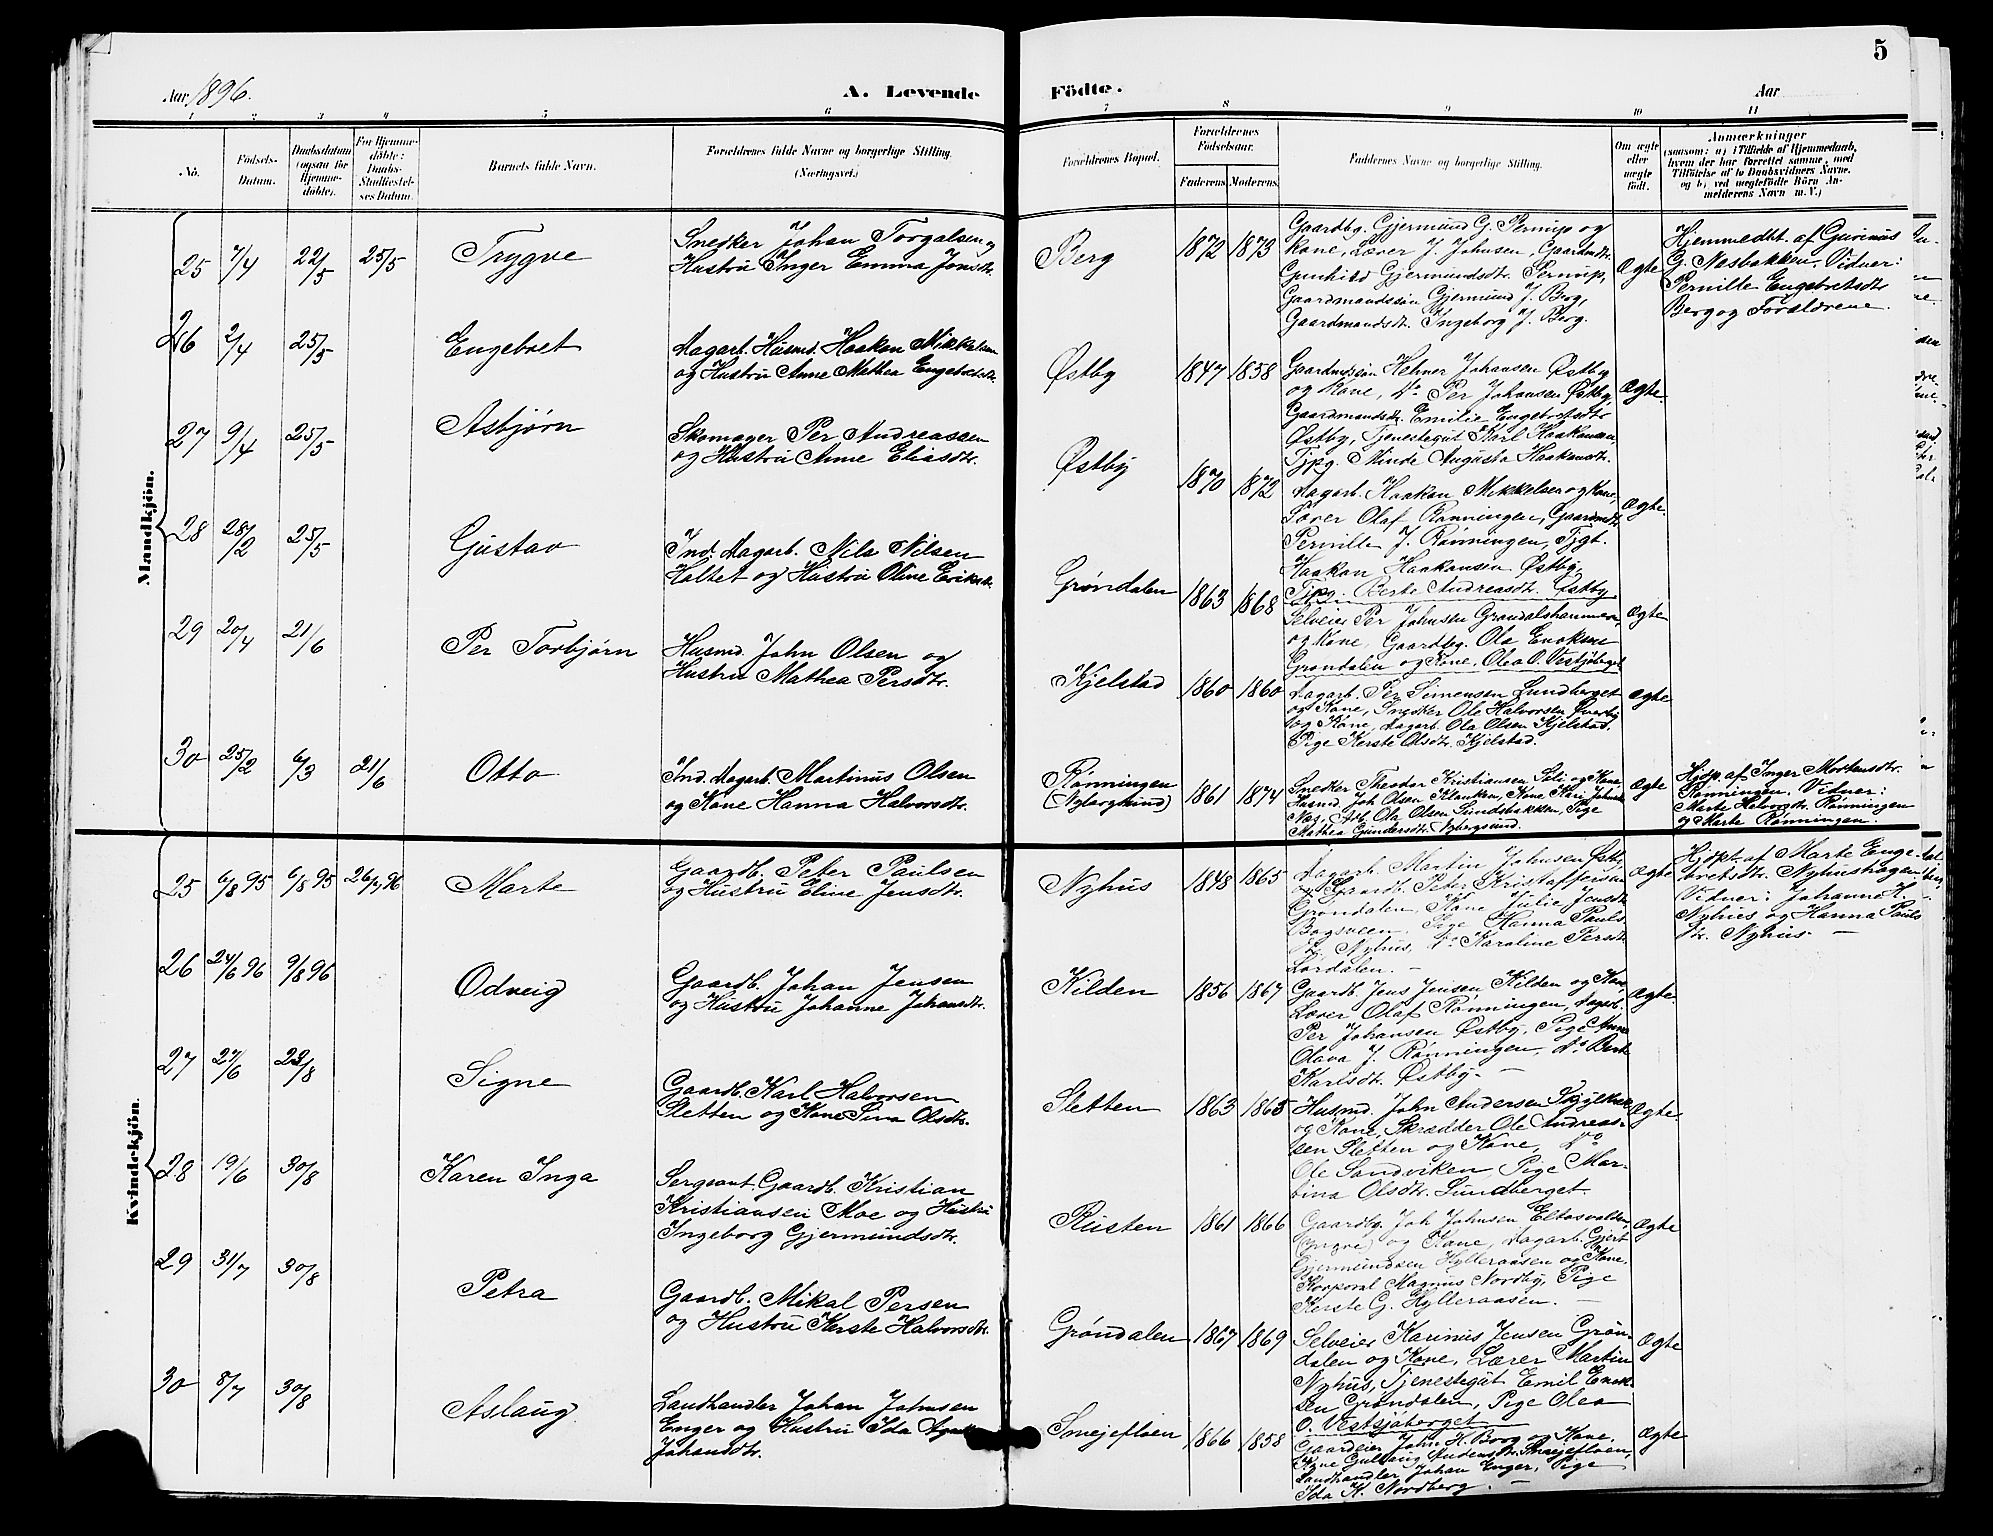 5
Aar 1896.
A. Levende
Födte.
Aar
1 2 3 4 5 6 7 8 9 10 11
No.
Födsels-
Datum.
Daabsdatum
(ogsaa for
Hjemme-
döbte).
For Hjemme-
döbte:
Daabs-
Stadfæstel-
ses Datum.
Barnets fulde Navn.
Forældrenes fulde Navne og borgerlige Stilling.
(Næringsvei.)
Forældrenes Bopæl.
Forældrenes
Födselsaar.
Faderens. Moderens.
Faddernes Navne og borgerlige Stilling.
Om ægte
eller
uægte
født.
Anmærkninger
(saasom: a) i Tilfælde af Hjemmedaab,
hvem der har forrettet samme, med
Tilföielse af to Daabsvidners Navne.
og b) ved uægtefödte Börn An-
melderens Navn m. V.)
Mandkjön.
25 7/4 22/5 25/5 Trygve
Snedker Johan Torgalsen og
Hustru Inger Emma Jonsdtr.
Berg 1872 1873
Gaardbg. Gjermund G. Pernup og
Kone, Lærer J. Johnsen, Gaardmdtr.
Gunhild Gjermundsdtr. Pernup,
Gaardmandssön Gjermund J. Berg,
Gaardmandsdtr. Ingeborg J. Berg.
Ægte
Hjemmedbt. af Gurinus
G. Næsbakken. Vidner:
Pernille Engebretsdtr
Berg og Forældrene.
26 2/4 25/5 Engebret
Dagarb. Husmd. Haakon Mikkelsen
og Hustru Anne Mathea Engebretsdtr.
Østby 1847 1858
Gaardmdssön Helmer Johansen Østby
og Kone, Do Per Johansen Østby,
Gaardmandsdtr. Emilie Engebretsdtr
Østby, Tjenestegut Karl Haakonsen,
Tjpg. Minde Augusta Haakonsdtr.
Ægte.
27 9/4 25/5 Asbjørn
Skomager Per Andreassen
og Hustru Anne Eliasdtr.
Østby 1870 1872
Dagarb. Haakon Mikkelsen og Kone,
Lærer Olaf Rønningen, Gaardmdtr.
Pernille J. Rønningen, Tjgt.
Haakon Haakonsen Østby,
Tjpg. Berte Andreasdtr. Østby
Ægte.
28 28/2 25/5 Gustav
Ind. Dagarb. Nils Nilsen
Holtet og Hustru Oline Eriksdtr.
Grøndalen 1863 1868
Selveier Per Johnsen Grøndalshammeren,
og Kone, Gaardbg. Ola Enoksen
Grøndalen og Kone, Olea O. Vestsjöberget
Ægte
29 20/4 21/6 Per Torbjørn
Husmd. John Olsen og
Hustru Mathea Persdtr.
Kjelstad 1860 1860
Dagarb. Per Simensen Lundberget
og Kone, Snedker Ole Halvorsen Øverby
og Kone, Dagarb. Ola Olsen Kjelstad,
Pige Kerste Olsdtr. Kjelstad.
Ægte
30 25/2 6/3 21/6 Otto
Ind. Dagarb. Martinus Olsen
og Kone Hanna Halvorsdtr.
Rønningen
(Nybergsund) 1861 1874
Snedker Theodor Kristiansen Sæli og Kone,
Husmd. Joh Olsen Klanken, Kone Kari Johnsdtr
Næs, Arb. Ola Olsen Sundsbakken, Pige
Mathea Gundersdtr. Nybergsund.
Ægte
Hjdp. af Inger Mortensdtr.
Rønningen. Vidner:
Marte Halvorsdtr. Rønningen
og Marte Rønningen.
Kvindekjön.
25 6/8 95 6/8 95 26/7 96 Marte
Gaardb. Peter Paulsen
og Hustru Eline Jensdtr.
Nyhus 1848 1865
Dagarb. Martin Johnsen Østby
og Gaardb. Peter Kristoffersen
Grøndalen, Kone Julie Jensdtr
Bagsveen, Pige Hanna Pauls
Nyhus, Do Karoline Persdtr
Lørdalen. –
Ægte
Hjdpt. af Marte Enge-
bretsdtr. Nyhushagen
Vidner: Johanne H.
Nyhus og Hanna Pauls
dtr. Nyhus. –
26 24/6 96 9/8 96 Odveig
Gaardb. Johan Jensen
og Hustru Johanne Johansdtr.
Kilden 1856 1867
Gaardb. Jens Jensen Kilden og Kone
Lærer Olaf Rønningen, Dagarb.
Per Johansen Østby, Pige Anne
Olava J. Rønningen, Do Berte
Karlsdtr. Østby. –
Ægte.
27 27/6 23/8 Signe
Gaardb. Karl Halvorsen
Sletten og Kone Sina Olsdtr.
Sletten 1863 1865
Husmd. John Andersen
og Kone, Skrædder Ole Andreas-
sen Sletten og Kone, Do
Ole Sandviken, Pige Mar-
tina Olsdtr. Lundberget.
Ægte.
28 19/6 30/8 Karen Inga
Sergeant. Gaardb. Kristian
Kristiansen Moe og Hustru
Ingeborg Gjermundsdtr.
Rusten 1861 1866
Gaardbg. Joh Johnsen Eltosvolden,
(yngre) og Kone, Dagarb. Gjert
Gjermundsen Hylleraasen og Kone,
Korporal Magnus Nordby, Pige
Kerste G. Hylleraasen. –
Ægte
29 31/7 30/8 Petra
Gaardb. Mikal Persen
og Hustru Kerste Halvorsdtr.
Grøndalen 1867 1869
Selveier Karinus Jensen Grøn-
dalen og Kone, Lærer Martin
Nyhus, Tjenestegut Emil Enok-
sen Grøndalen, Pige Olea
O. Vestsjøberget
Ægte
30 8/7 30/8 Aslaug
Landhandler Johan Johnsen
Enger og Hustru Ida
Johansdtr.
Smejefloen 1866 1858
Gaardeier John H. Borg og Kone,
Kone Gullaug Andersdtr. Smejefloen,
Landhandler Johan Enger, Pige
Ida K. Nordberg. –
Ægte